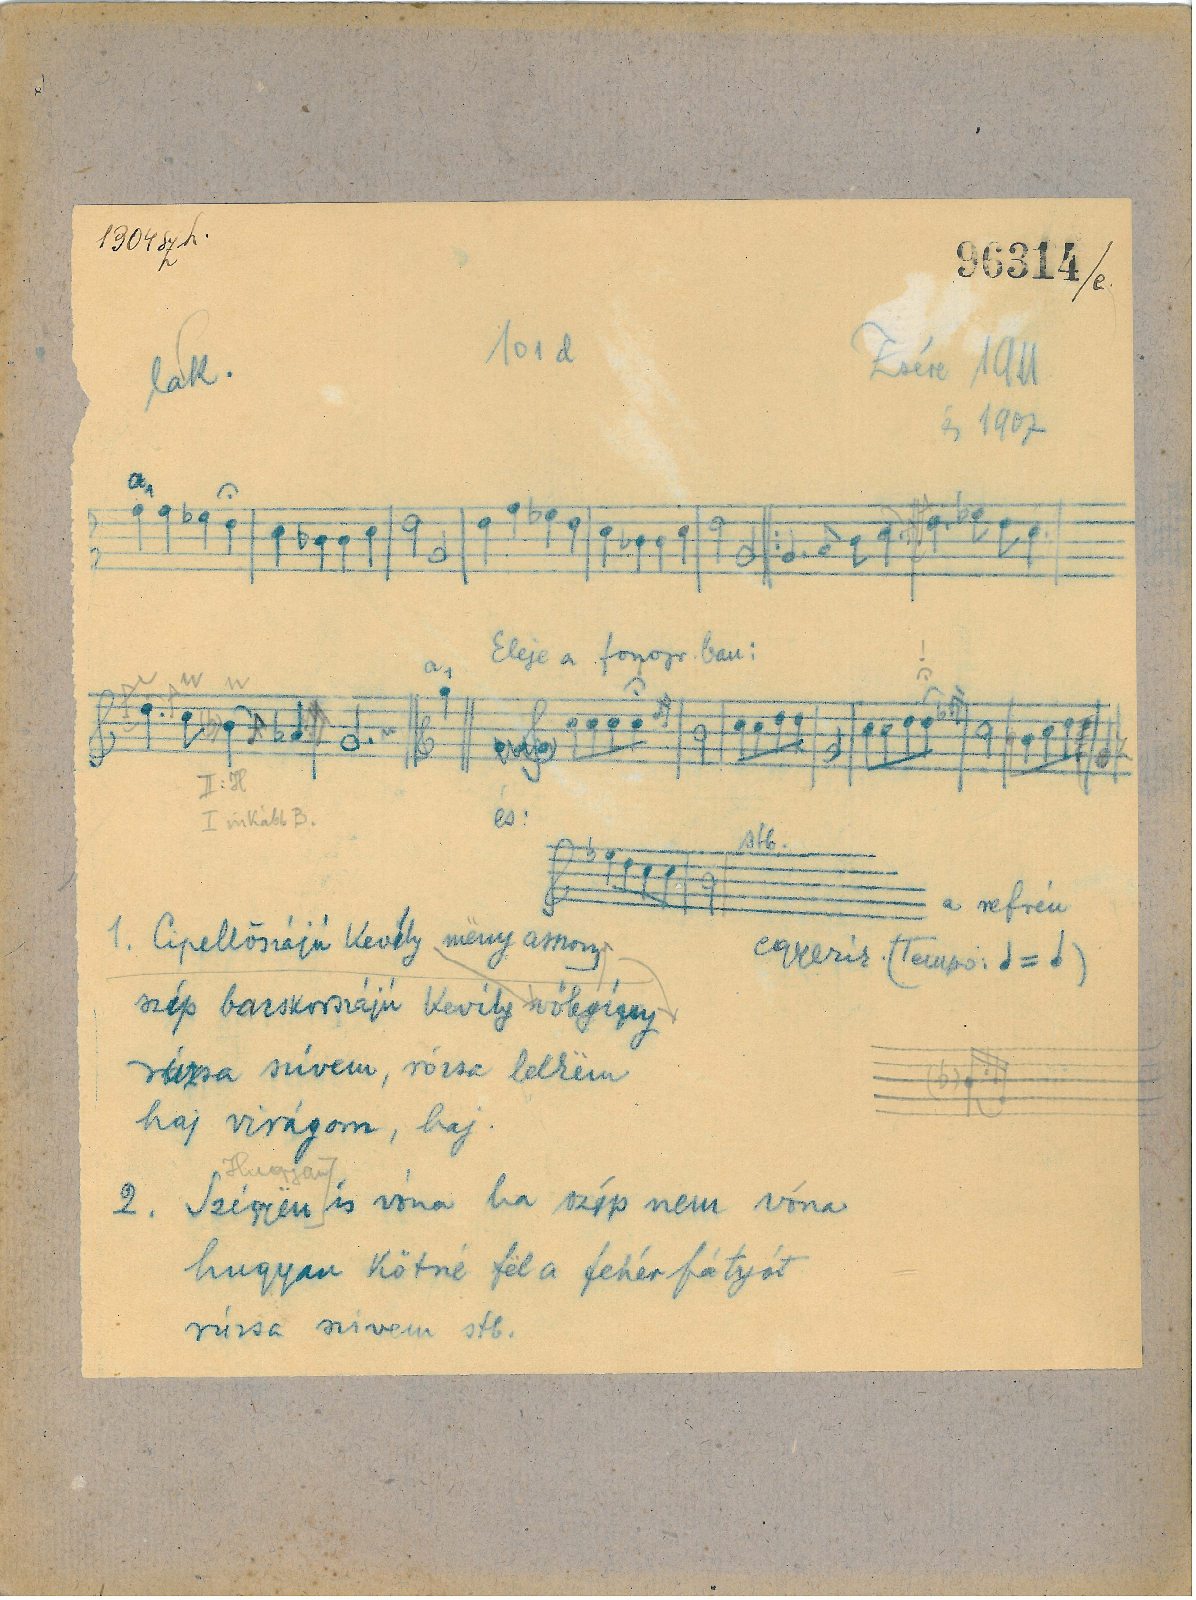 1304 szh.
96314/e.
lak.
101 d
Zsére 1911
és 1907
a₁
Eleje a fonogr. ban:
a₁
!
II: H
I inkább B.
és:
stb.
a refrén
egyezis. (Tempo: 𝅗𝅥 = 𝅗𝅥)
1. Cipellősszájú Kevély mëny asszony
szép bacskorszájú Kevély vőlegíny
rúzsa szívem, rózsa lelkëm
haj virágom, haj.
(b)
Hugyan
2. Szégyën is vóna ha szép nem vóna
hugyan Kötné fël a fehér fátyját
rúzsa szivem stb.